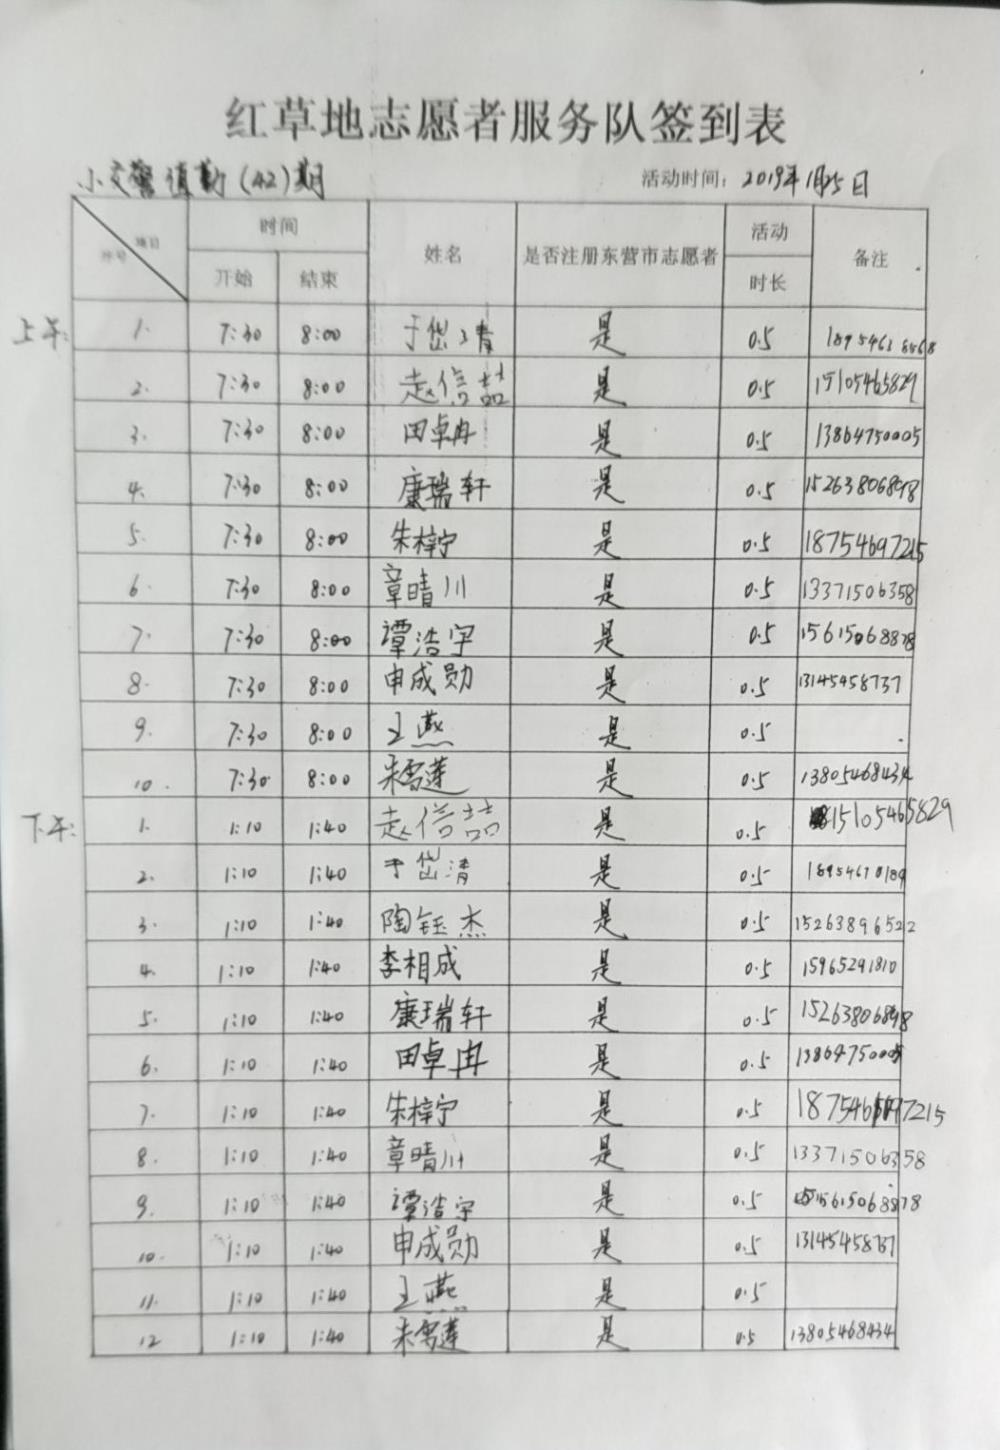 红草地志愿者服务队签到表
小交警值勤(42)期 活动时间: 2019年1月25日
项目 序号 时间 姓名 是否注册东营市志愿者 活动 备注
开始 结束 时长
上午: 1. 7:30 8:00 于岱清 是 0.5
2. 7:30 8:00 赵信喆 是 0.5 15105465829
3. 7:30 8:00 田卓冉 是 0.5 13864750005
4. 7:30 8:00 康瑞轩 是 0.5 15263806898
5. 7:30 8:00 朱梓宁 是 0.5 18754697215
6. 7:30 8:00 章晴川 是 0.5 13371506358
7. 7:30 8:00 谭浩宇 是 0.5 15615068878
8. 7:30 8:00 申成勋 是 0.5 13145458737
9. 7:30 8:00 王燕 是 0.5
10. 7:30 8:00 朱雪莲 是 0.5 13805468434
下午: 1. 1:10 1:40 赵信喆 是 0.5 15105465829
2. 1:10 1:40 于岱清 是 0.5 18954670189
3. 1:10 1:40 陶钰杰 是 0.5 15263896522
4. 1:10 1:40 李相成 是 0.5 15965291810
5. 1:10 1:40 康瑞轩 是 0.5 15263806898
6. 1:10 1:40 田卓冉 是 0.5 13864750005
7. 1:10 1:40 朱梓宁 是 0.5
8. 1:10 1:40 章晴川 是 0.5 13371506358
9. 1:10 1:40 谭浩宇 是 0.5 15615068878
10. 1:10 1:40 申成勋 是 0.5 13145458737
11. 1:10 1:40 王燕 是 0.5
12 1:10 1:40 朱雪莲 是 0.5 13805468434